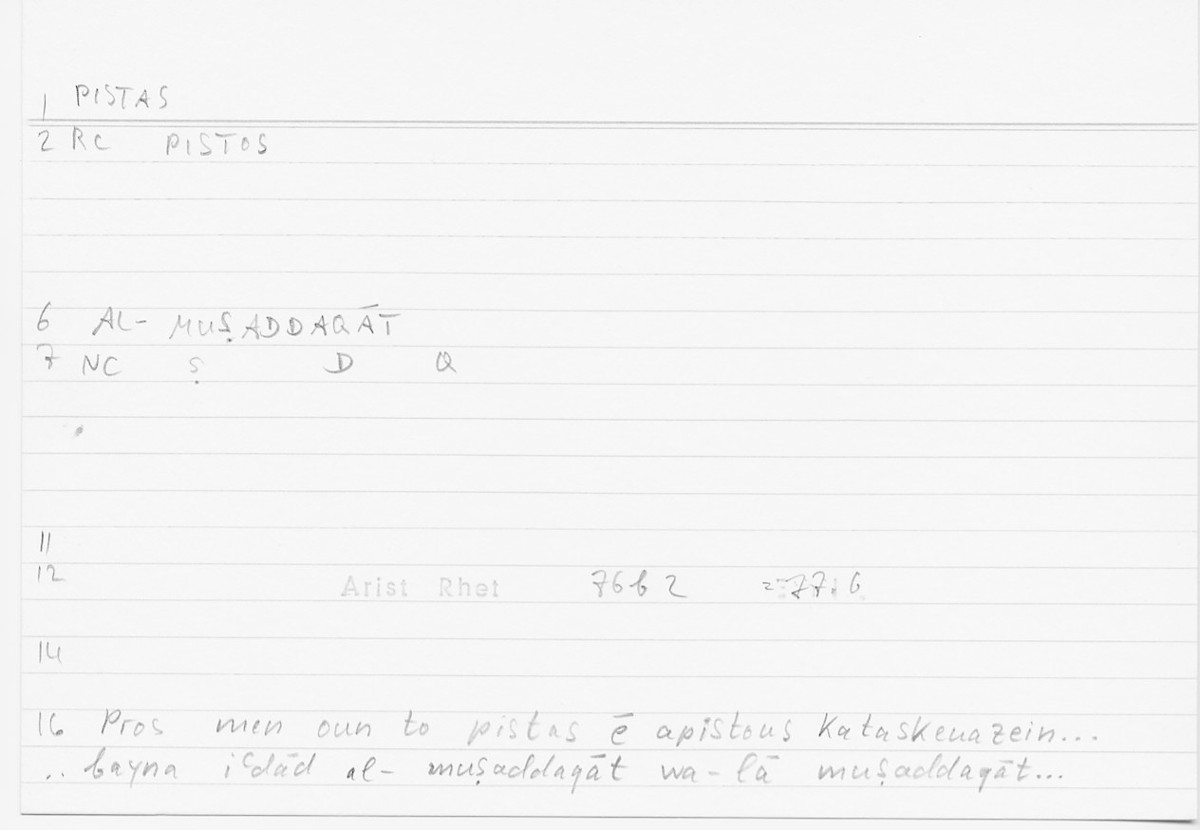 1 PISTAS
2 RC PISTOS
6 AL- MUṢADDAQĀT
7 NC Ṣ D Q
11
12 Arist Rhet 76b2 = 77.6
14
16 Pros men oun to pistas ē apistous kataskeuazein...
.. bayna iʿdād al- muṣaddaqāt wa-lā muṣaddaqāt...